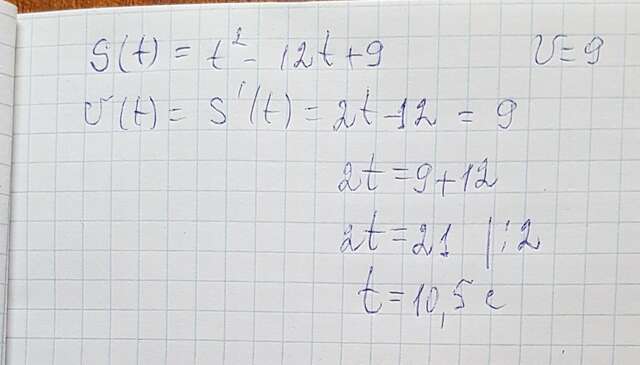 S(t) = t² - 12t + 9 V = 9
V(t) = S'(t) = 2t - 12 = 9
2t = 9 + 12
2t = 21 |:2
t = 10,5 с